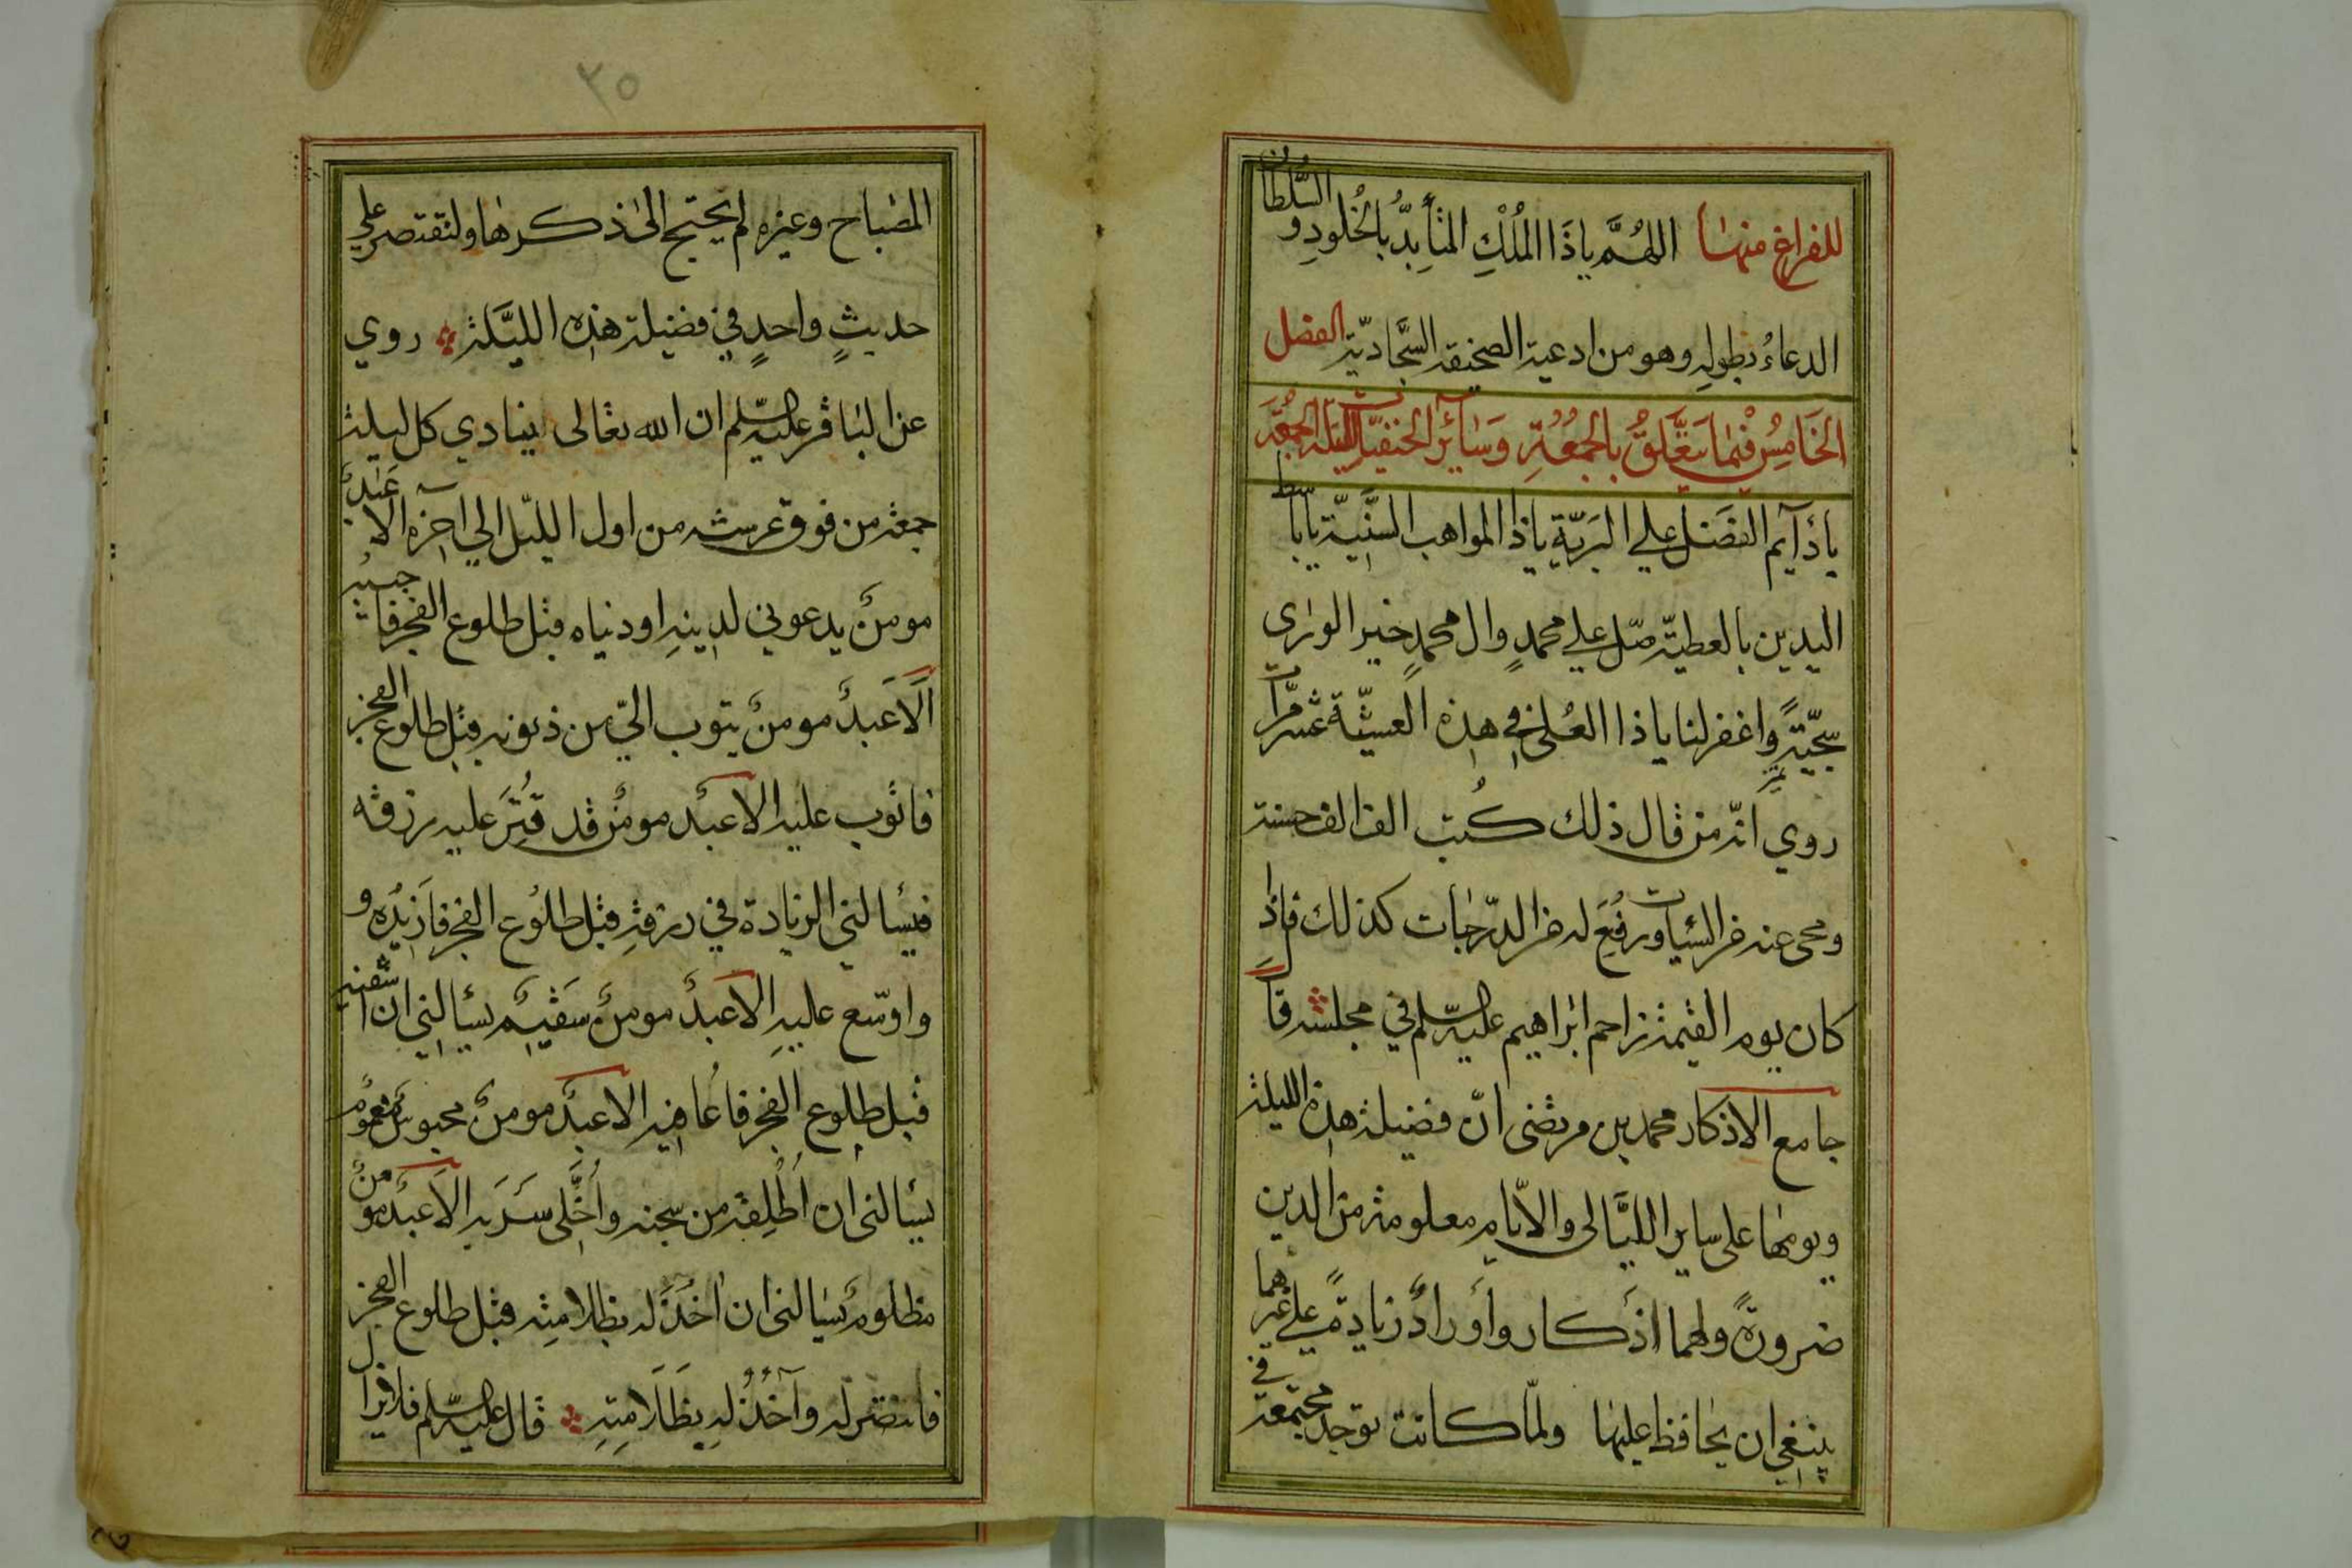 للفراغ منها اللهم ياذا الملك المتأبد بالخلود و السلطان
الدعاء بطوله وهو من ادعية الصحيفة السجادية الفصل
الخامس فيما يتعلق بالجمعة وسائر ليلة الجمعة
يا دآيم الفضل علي البرية ياذا المواهب السنية يا باسط
اليدين بالعطية صل علي محمد وال محمد خير الورى
سجية واغفر لنا ياذا العلى في هذه العشية عشر مرات
روي انه من قال ذلك كتب الف الف حسنة
ومحى عنه من السيات ورفع له من الدرجات كذلك فاذا
كان يوم القيمة زاحم ابراهيم عليه السلم في مجلسه قال
جامع الاذكار محمد بن مرتضى ان فضيلة هذه الليلة
ويومها على ساير الليالى والايام معلومة من الدين
ضرورة ولهما اذكار وأوراد زيادة علي غيرهما
ينبغي ان يحافظ عليها ولما كانت توجد مجتمعة في
٢٥
المصباح وغيره لم يحتج الى ذكرها ولنقتصر علي
حديث واحد في فضيلة هذه الليلة روي
عن الباقر عليه السلم ان الله تعالى ينادي كل ليلة
جمعة من فوق عرشه من اول الليل الي آخره الا عبد
مومن يدعوني لدينه او دنياه قبل طلوع الفجر فاجيبه
الا عبد مومن يتوب الي من ذنوبه قبل طلوع الفجر
فاتوب عليه الا عبد مومن قد قتر عليه رزقه
فيسالني الزيادة في رزقه قبل طلوع الفجر فازيده و
واوسع عليه الا عبد مومن سقيم يسالني ان اشفيه
قبل طلوع الفجر فاعافيه الا عبد مومن محبوس مغموم
يسالنى ان اطلقه من سجنه واخلى سربه الا عبد مومن
مظلوم يسالنى ان اخذ له بظلامته قبل طلوع الفجر
فانتصر له وآخذ له بظلامته قال عليه السلم فلا يزال